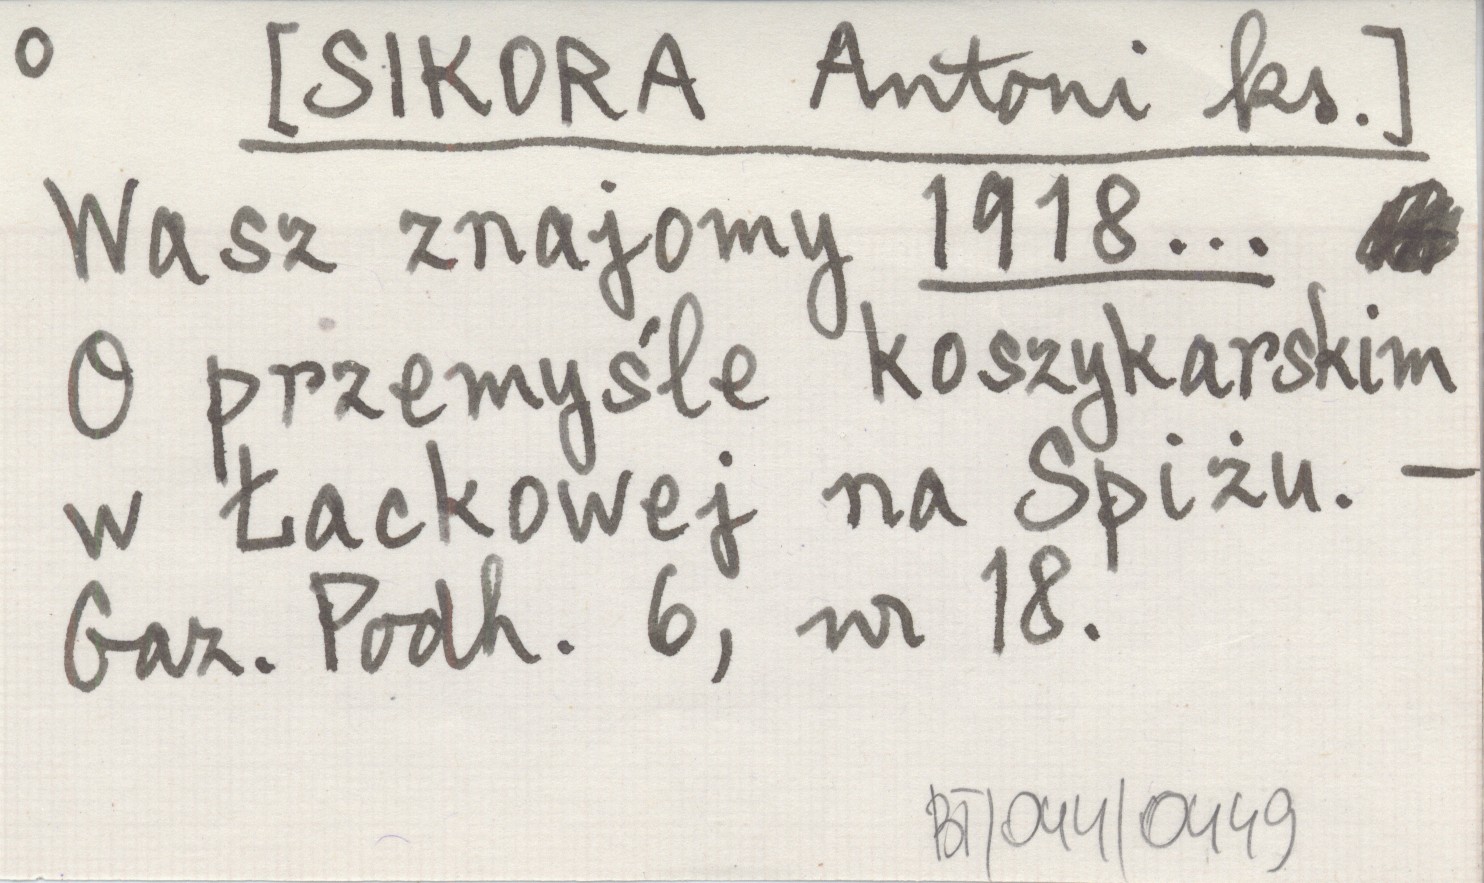 o [SIKORA Antoni ks.]
Wasz znajomy 1918...
O przemyśle koszykarskim
w Łackowej na Spiżu. –
Gaz. Podh. 6, nr 18.
BT/044/0449